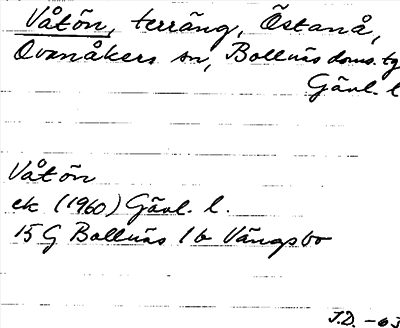 Våtön, terräng, Östanå,
Ovanåkers sn, Bollnäs doms. tg
Gävl. l
Våtön
ek (1960) Gävl. l.
15 G Bollnäs 1b Vängsbo
J.D. -63